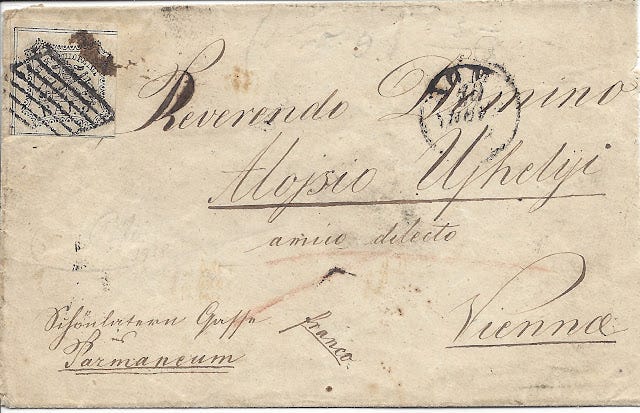 Reverendo Domino
Alojsio Ujhelyi
amico dilecto
Viennæ
Schönlatern Gasse
Pazmaneum
franco.